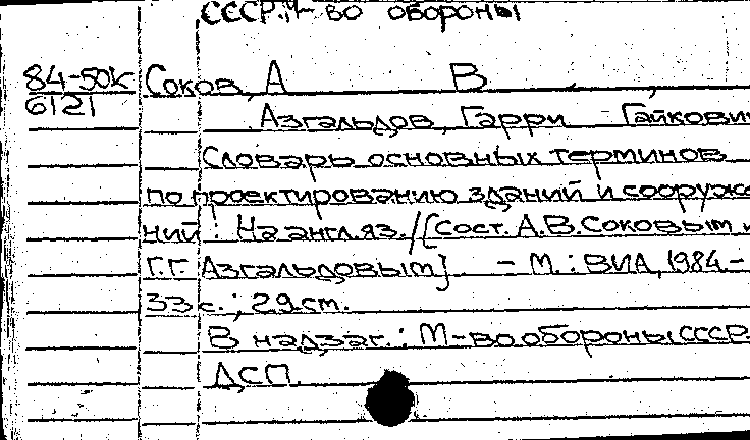 СССР. М-во обороны
84-50к Соков, А В
6121
Азгальдов, Гарри Гайкович
Словарь основных терминов
по проектированию зданий и сооруже
ний: На англ. яз. / [Сост. А.В.Соковым и
Г.Г. Азгальдовым] - М.: ВИА, 1984.-
33 с.; 29 см.
В надзаг.: М-во обороны СССР.
ДСП.